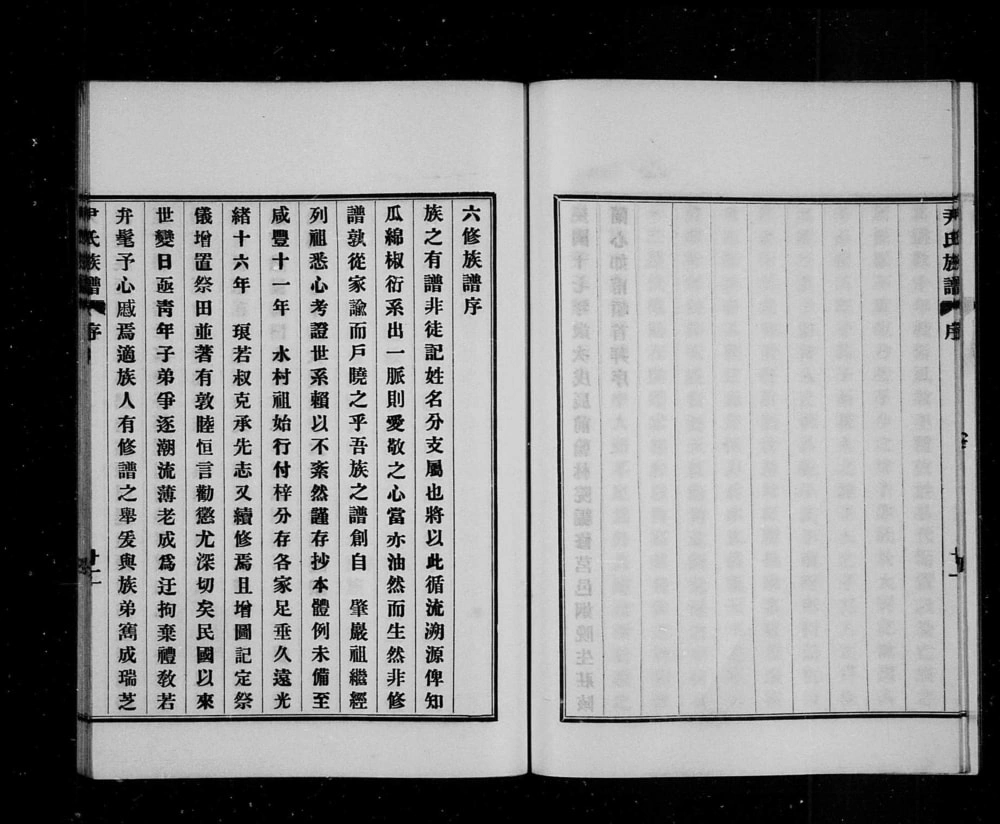 尹氏族譜 序
六修族譜序
族之有譜非徒記姓名分支屬也將以此循流溯源俾知
瓜綿椒衍系出一脈則愛敬之心當亦油然而生然非修
譜敦從家諭而戶曉之乎吾族之譜創自 肇嚴祖繼經
列祖悉心考證世系賴以不紊然謹存抄本體例未備至
咸豐十一年 水村祖始行付梓分存各家足垂久遠光
緒十六年 琅若叔克承先志又續修焉且增圖記定祭
儀增置祭田並著有敦睦恒言勸懲尤深切矣民國以來
世變日亟靑年子弟爭逐潮流薄老成爲迂拘棄禮敎若
弁髦予心戚焉適族人有修譜之舉爰與族弟寯成瑞芝
尹氏族譜 序 廿二